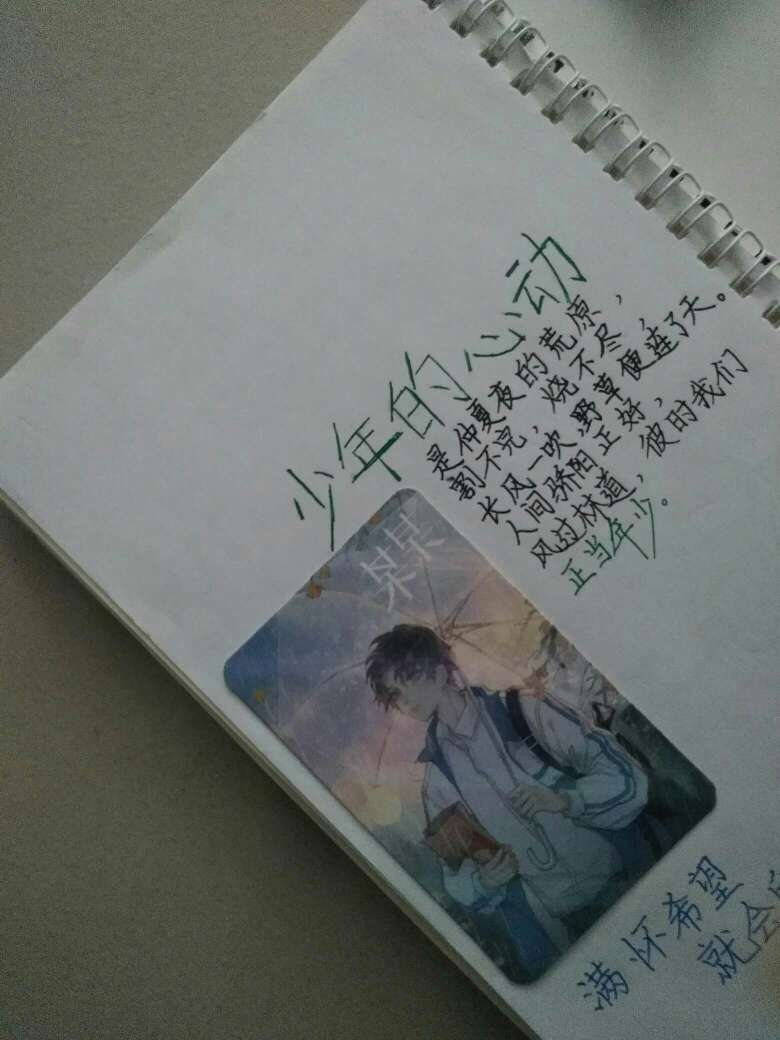 少年的心动
是仲夏夜的荒原，
割不完，烧不尽，
长风一吹，野草便连了天。
人间骄阳正好，
风过林道，彼时我们
正当年少。
某某
满怀希望
就会